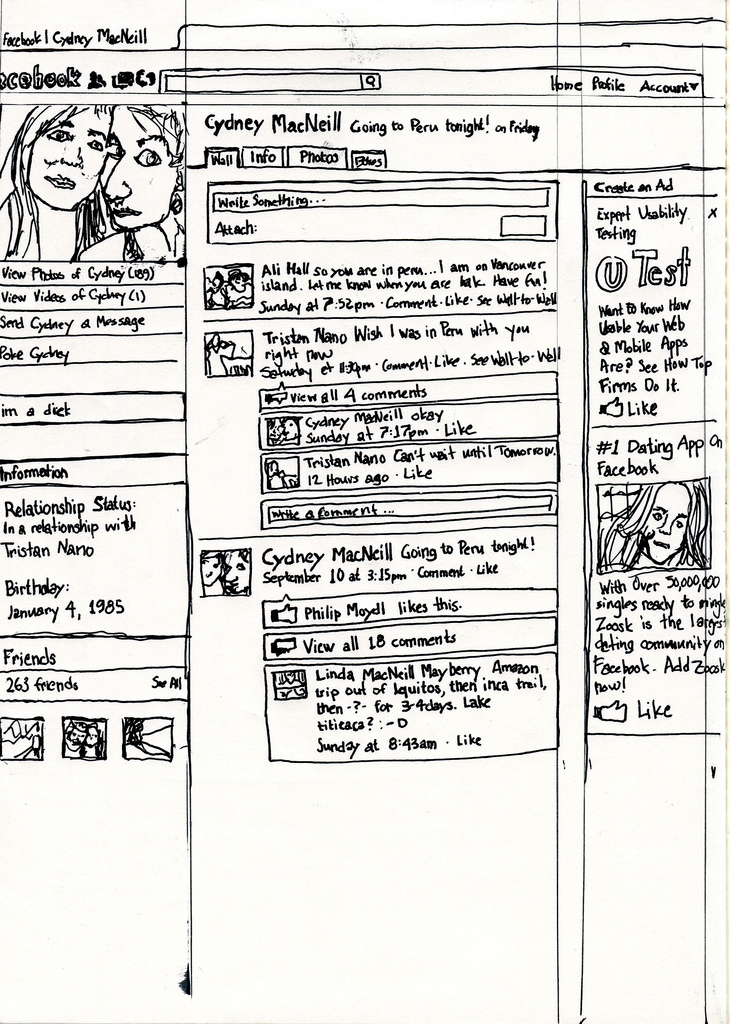 Facebook | Cydney MacNeill
acebook
Home Profile Account
Cydney MacNeill Going to Peru tonight! on Friday
Wall Info Photos
Write Something...
Attach:
View Photos of Cydney (189)
View Videos of Cydney (1)
Send Cydney a Message
Poke Cydney
im a dick
Information
Relationship Status:
In a relationship with
Tristan Nano
Birthday:
January 4, 1985
Friends
263 friends See All
Ali Hall so you are in peru... I am on Vancouver
island. Let me know when you are bak. Have fun!
Sunday at 7:52pm · Comment · Like · See Wall-to-Wall
Tristan Nano Wish I was in Peru with you
right now
Saturday at 11:39pm · Comment · Like · See Wall-to-Wall
View all 4 comments
Cydney MacNeill okay
Sunday at 7:17pm · Like
Tristan Nano Can't wait until Tomorrow.
12 Hours ago · Like
Write a Comment...
Cydney MacNeill Going to Peru tonight!
September 10 at 3:15pm · Comment · Like
Philip Moydl likes this.
View all 18 comments
Linda MacNeill Mayberry Amazon
trip out of Iquitos, then inca trail,
then -?- for 3-4days. Lake
titicaca? :-D
Sunday at 8:43am · Like
Create an Ad
Expert Usability x
Testing
U Test
Want to Know How
Usable Your Web
& Mobile Apps
Are? See How Top
Firms Do It.
Like
#1 Dating App On
Facebook
With Over 50,000,000
singles ready to mingle
Zoosk is the largest
dating community on
Facebook. Add Zoosk
now!
Like